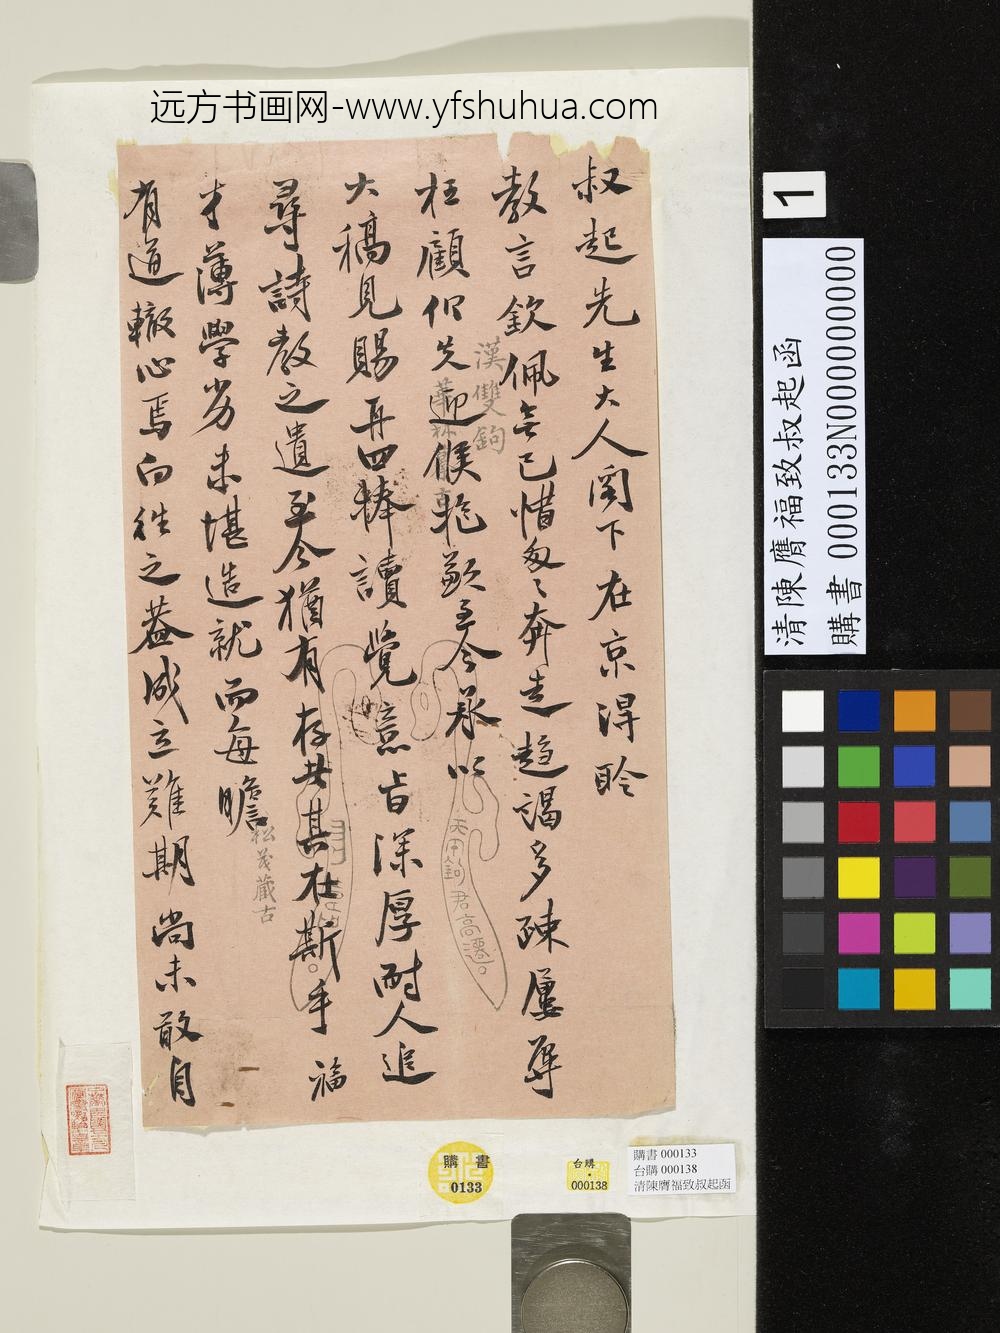 远方书画网-www.yfshuhua.com
叔起先生大人阁下在京得聆
教言欽佩無已惜匆匆奔走趋謁多疎屢辱
枉顧仍失迎候抱歉至今承以
大稿見賜再四捧讀覺意旨深厚耐人追
尋詩教之遺至今猶有存者其在斯乎福
才薄學劣未堪造就而每瞻
有道轍心焉向往之蓋成立難期尚未敢自
漢雙鉤
天甲鉤君高遷
松茂藏古
1
清陳膺福致叔起函
購書 000133N000000000
購書
0133
台購
000138
購書 000133
台購 000138
清陳膺福致叔起函